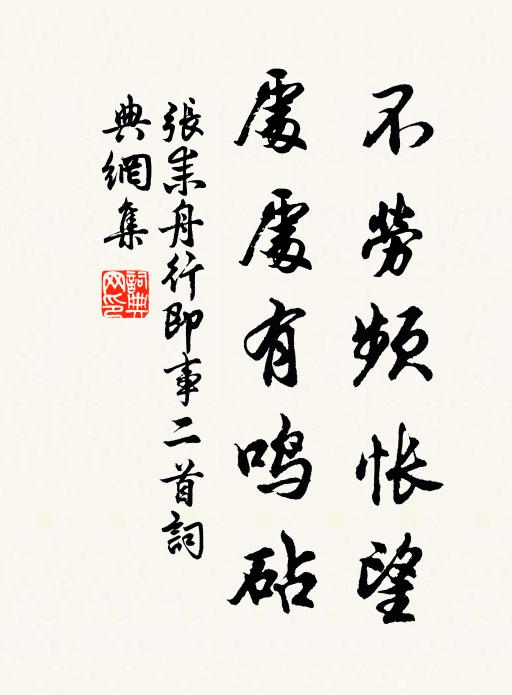 不勞頻悵望
處處有鳴砧
張耒舟行即事二首詞
典網集
詞典网印